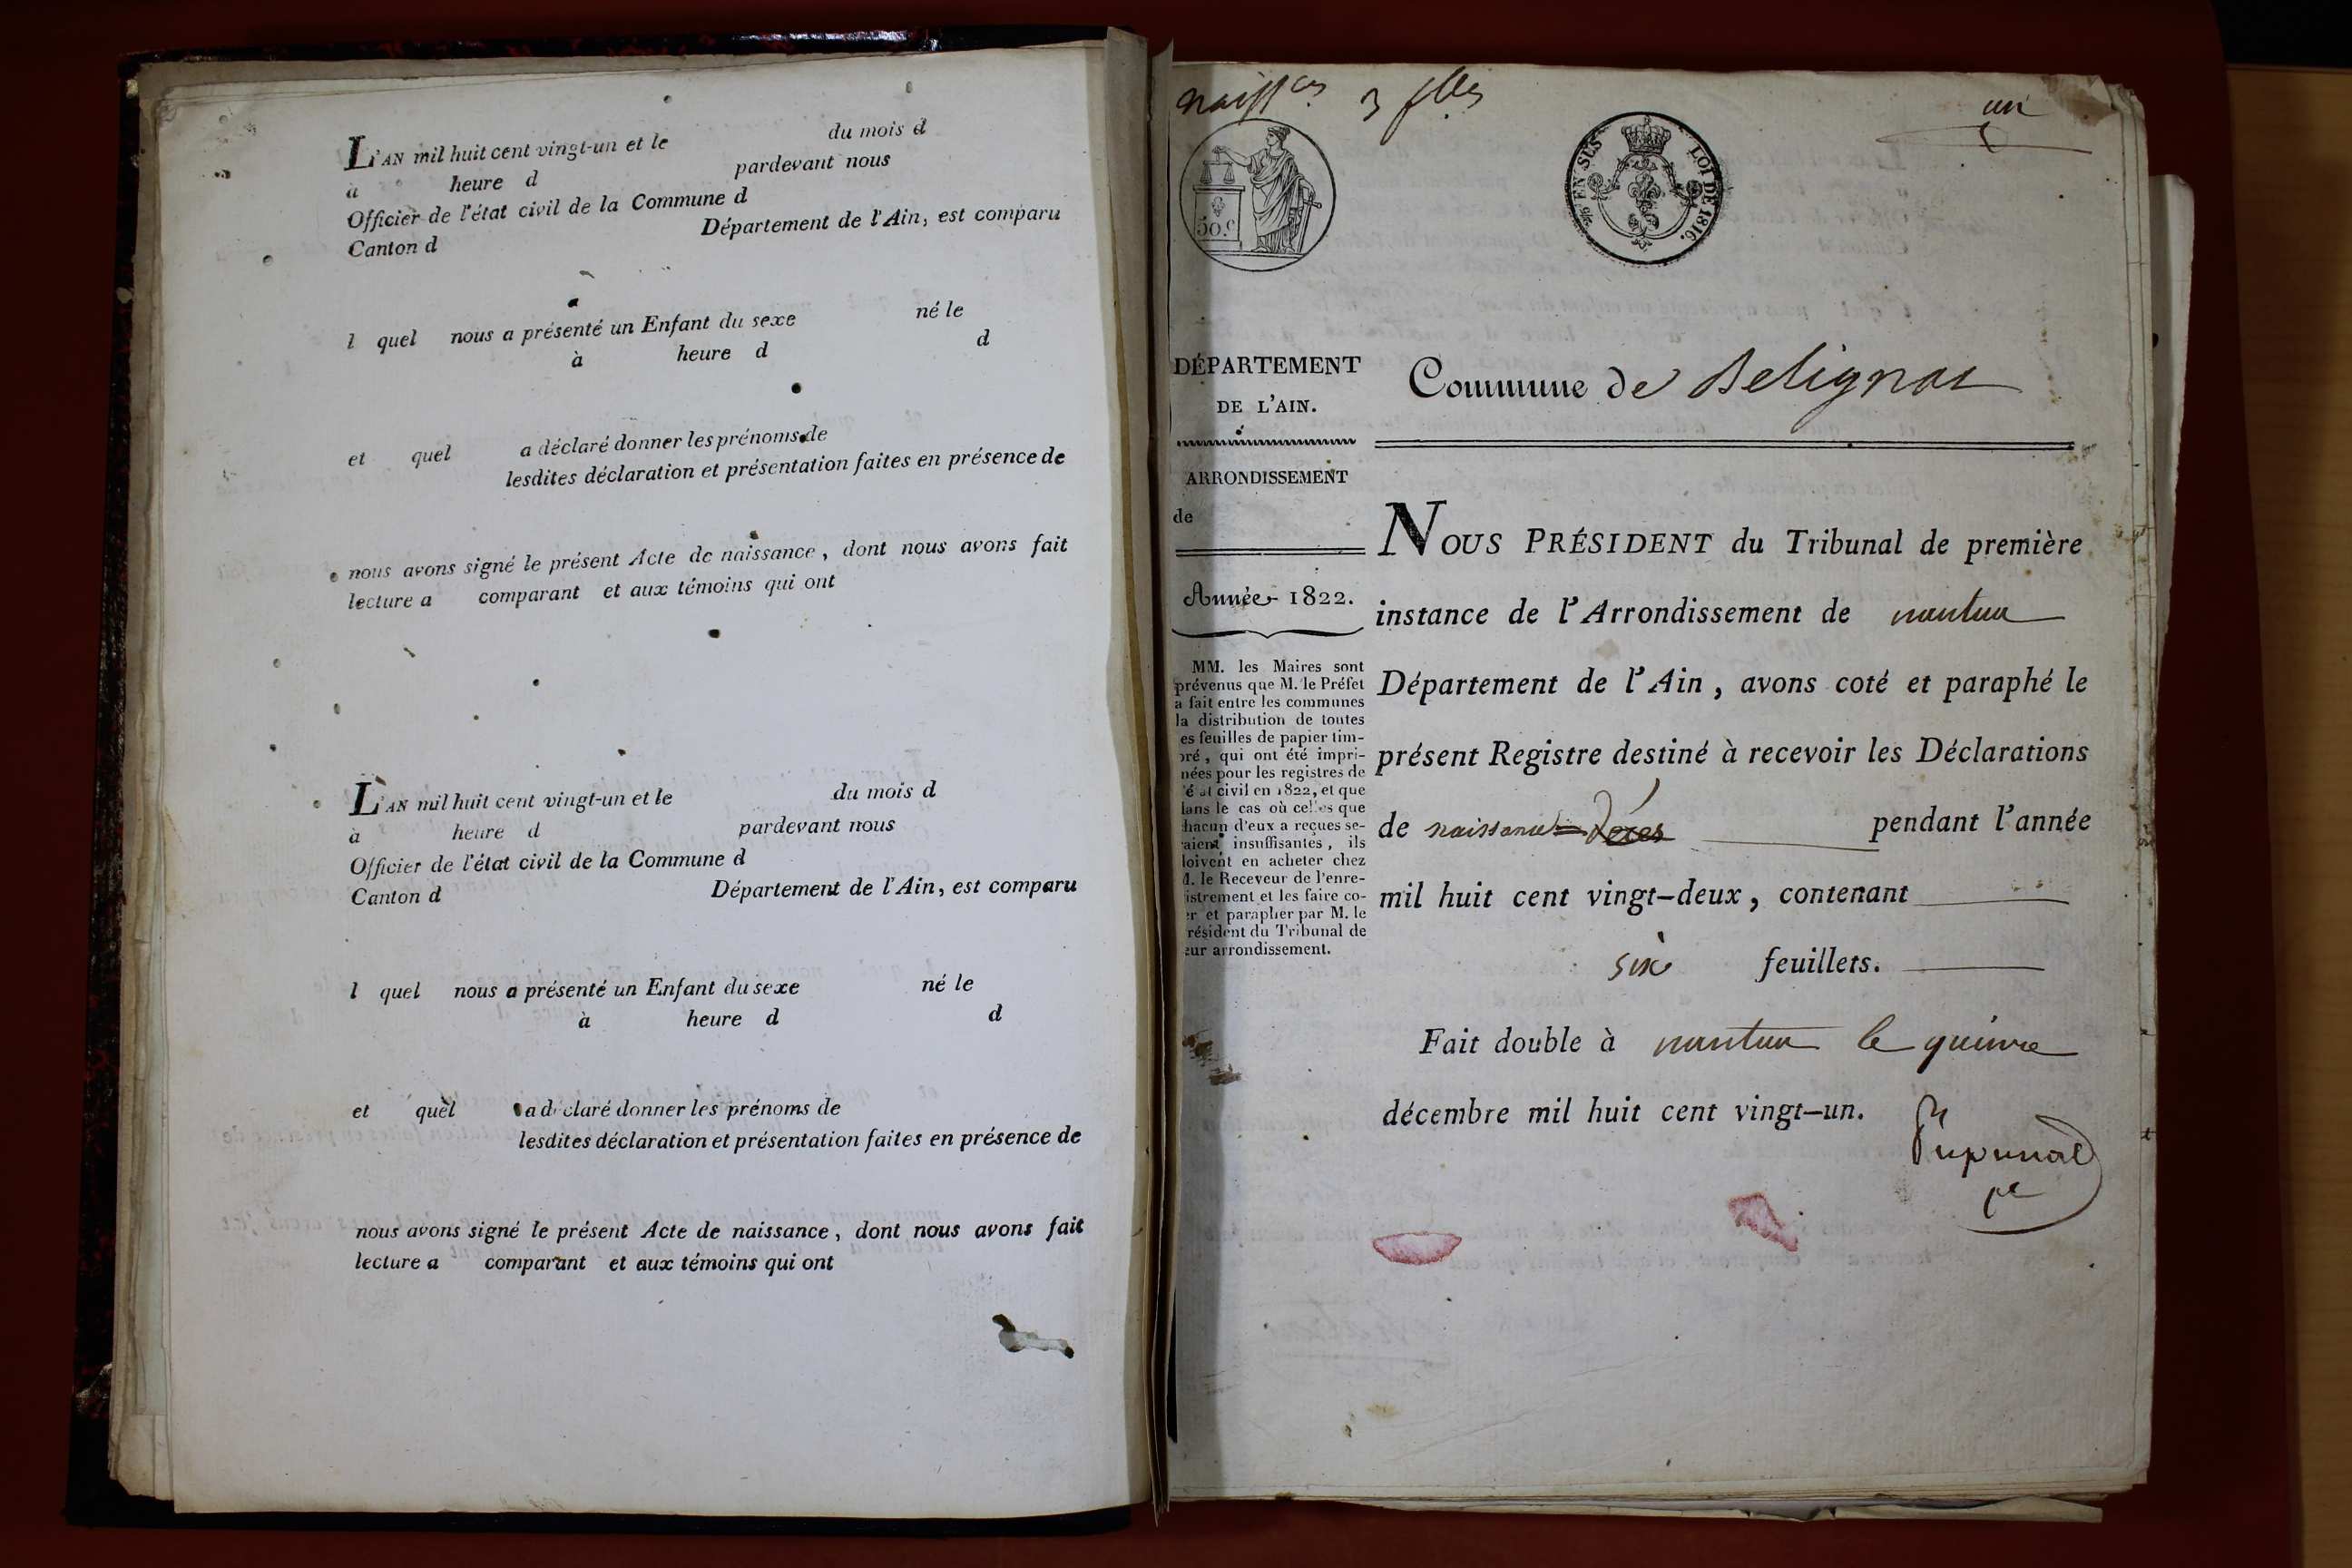 L'AN mil huit cent vingt-un et le du mois d
à heure d pardevant nous
Officier de l'état civil de la Commune d
Canton d Département de l'Ain, est comparu
l quel nous a présenté un Enfant du sexe né le
à heure d d
et quel a déclaré donner les prénoms de
lesdites déclaration et présentation faites en présence de
nous avons signé le présent Acte de naissance, dont nous avons fait
lecture a comparant et aux témoins qui ont
L'AN mil huit cent vingt-un et le du mois d
à heure d pardevant nous
Officier de l'état civil de la Commune d
Canton d Département de l'Ain, est comparu
l quel nous a présenté un Enfant du sexe né le
à heure d d
et quel a déclaré donner les prénoms de
lesdites déclaration et présentation faites en présence de
nous avons signé le présent Acte de naissance, dont nous avons fait
lecture a comparant et aux témoins qui ont
naiss ces 3 flles
un
50.c
EN SUS LOI DE 1816.
DÉPARTEMENT
DE L'AIN.
ARRONDISSEMENT
de
Année 1822.
MM. les Maires sont
prévenus que M. le Préfet
a fait entre les communes
la distribution de toutes
es feuilles de papier tim-
bré, qui ont été impri-
mées pour les registres de
é at civil en 1822, et que
dans le cas où celles que
chacun d'eux a reçues se-
raient insuffisantes, ils
doivent en acheter chez
M. le Receveur de l'enre-
istrement et les faire co-
er et parapher par M. le
résident du Tribunal de
eur arrondissement.
Commune de Belignat
NOUS PRÉSIDENT du Tribunal de première
instance de l'Arrondissement de nantua
Département de l'Ain, avons coté et paraphé le
présent Registre destiné à recevoir les Déclarations
de naissance Décès pendant l'année
mil huit cent vingt-deux, contenant
six feuillets.
Fait double à nantua le quinze
décembre mil huit cent vingt-un.